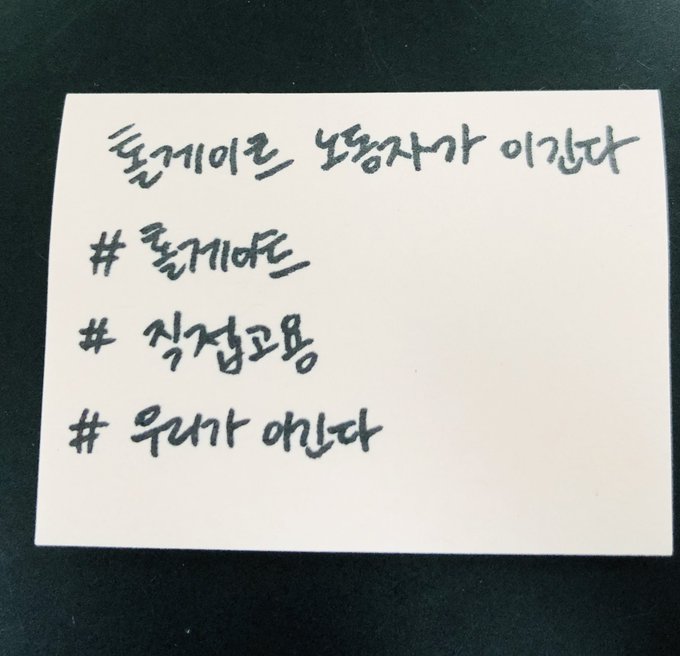 톨게이트 노동자가 이긴다
# 톨게이트
# 직접고용
# 우리가 이긴다